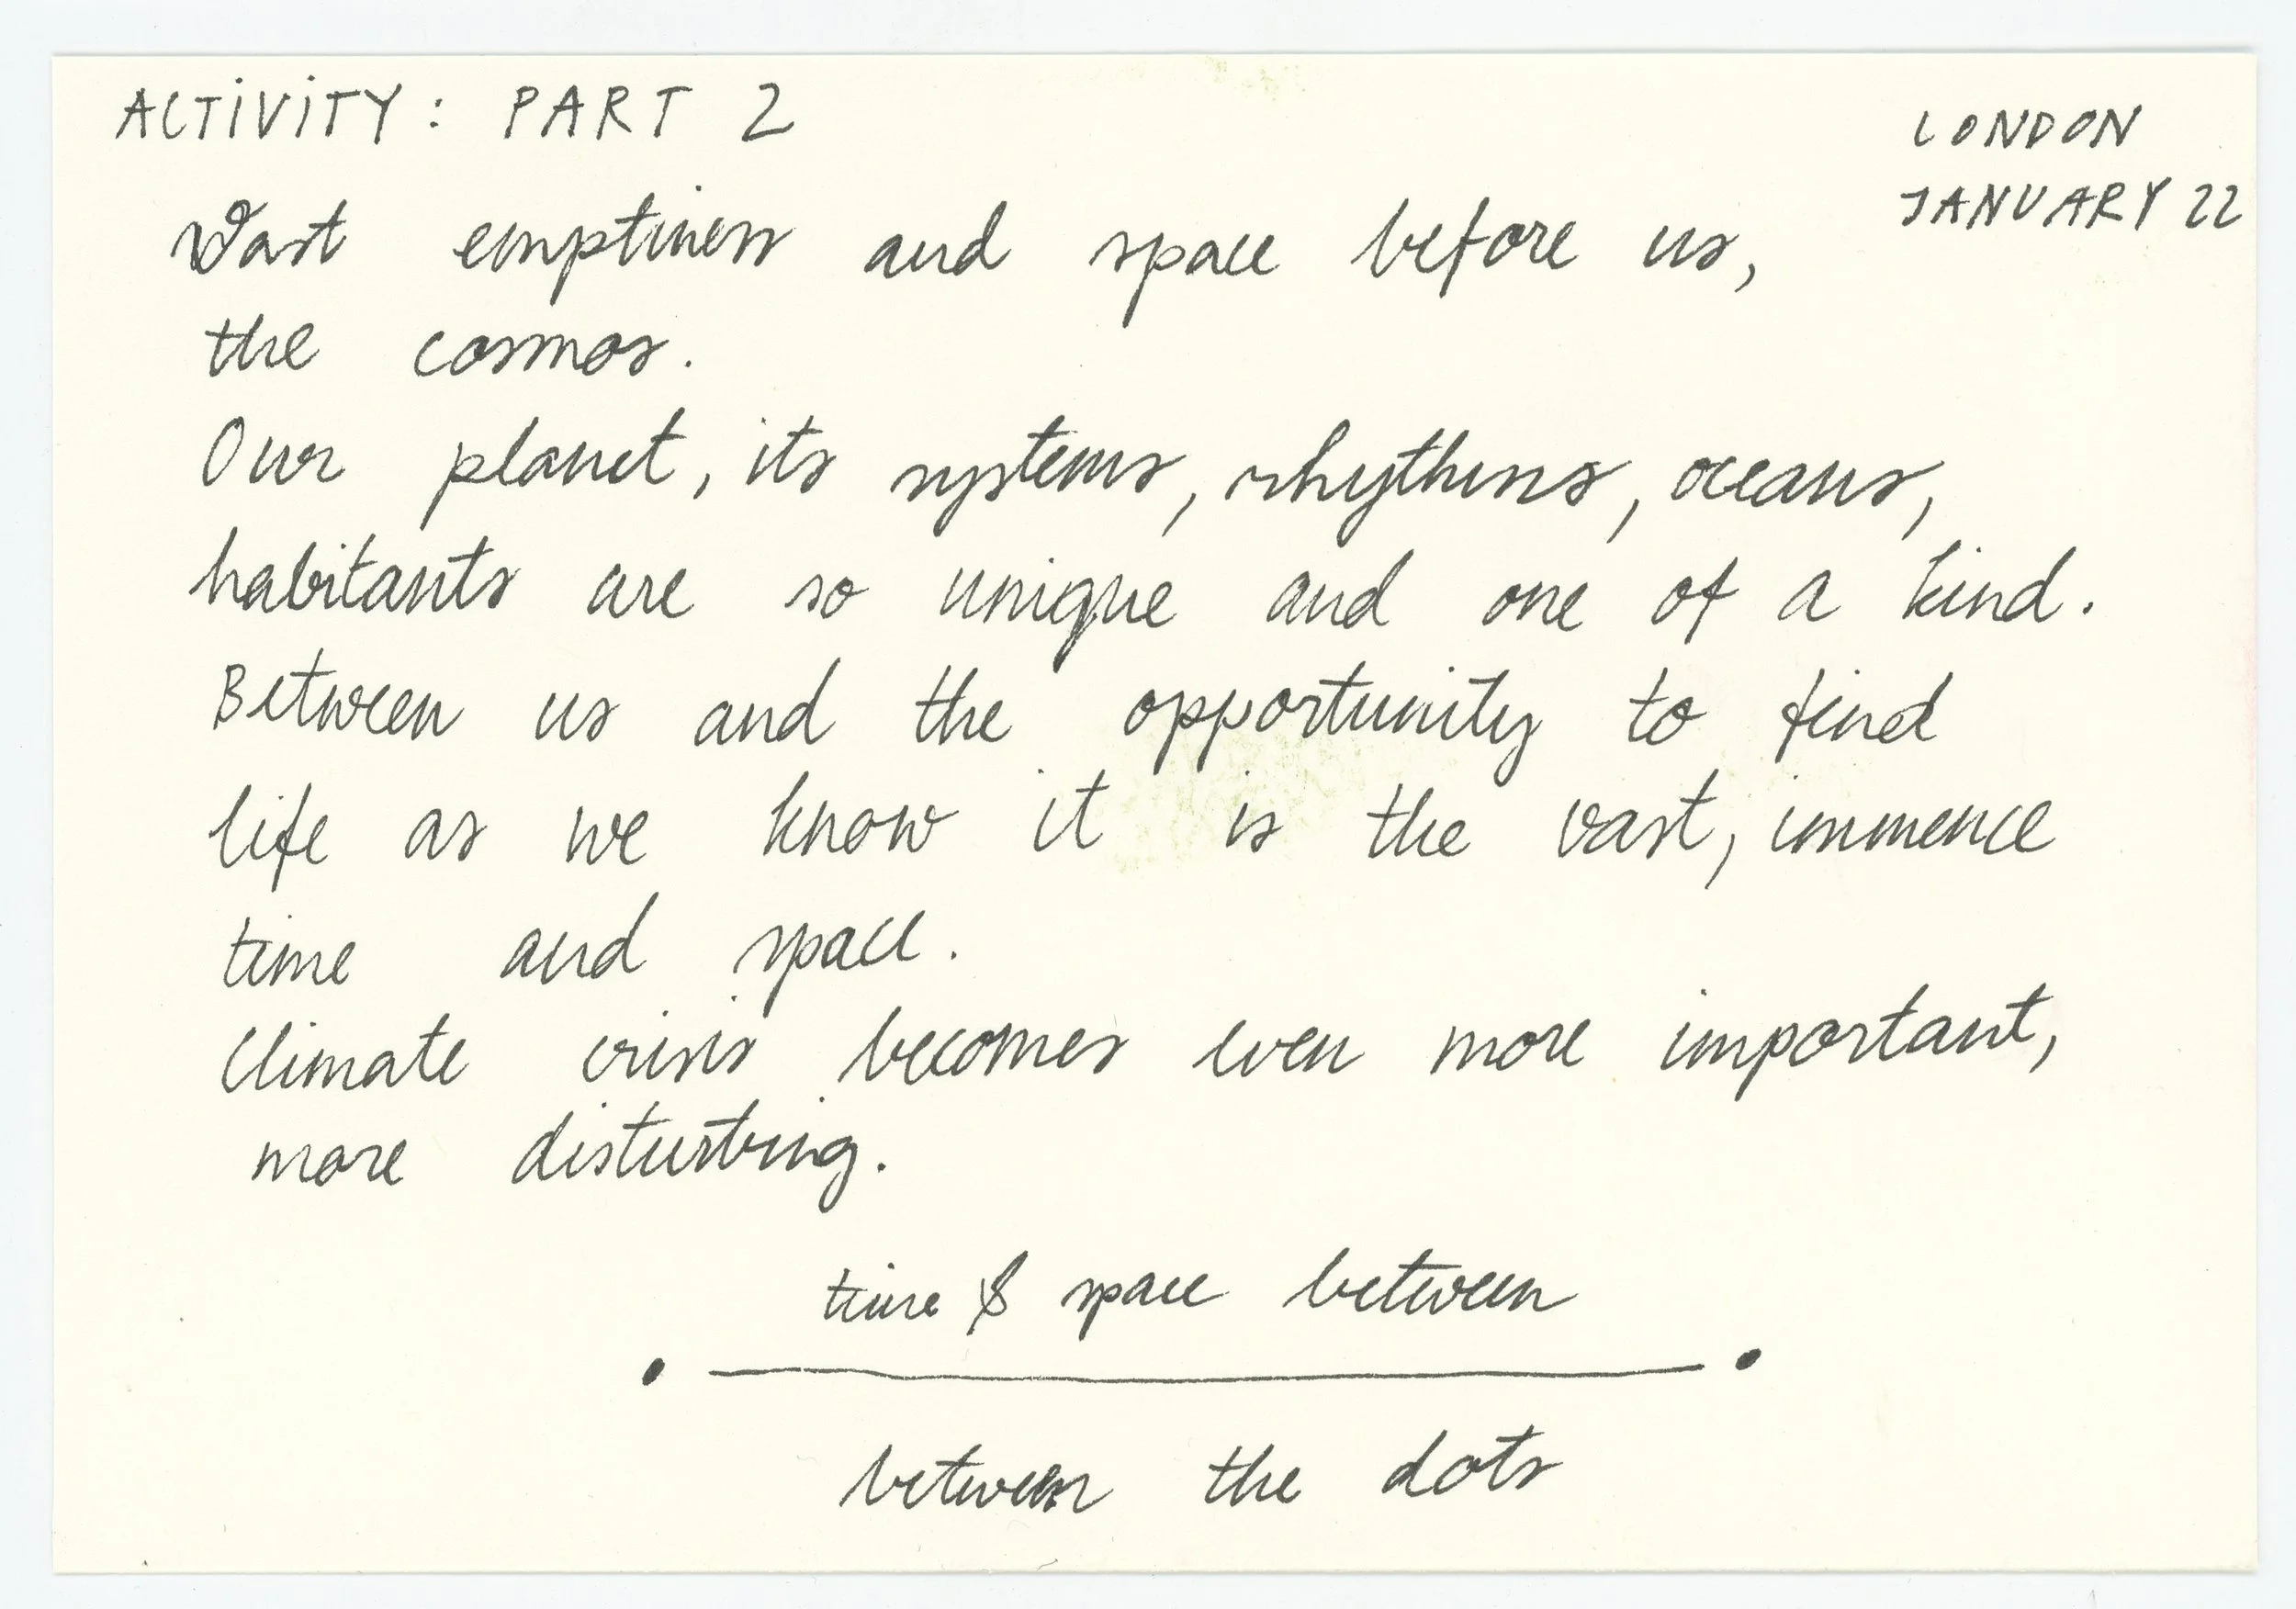 ACTIVITY: PART 2
LONDON
JANUARY 22
Vast emptiness and space before us,
the cosmos.
Our planet, its systems, rhythms, oceans,
habitants are so unique and one of a kind.
Between us and the opportunity to find
life as we know it is the vast, immence
time and space.
Climate crisis becomes even more important,
more disturbing.
time & space between
between the dots